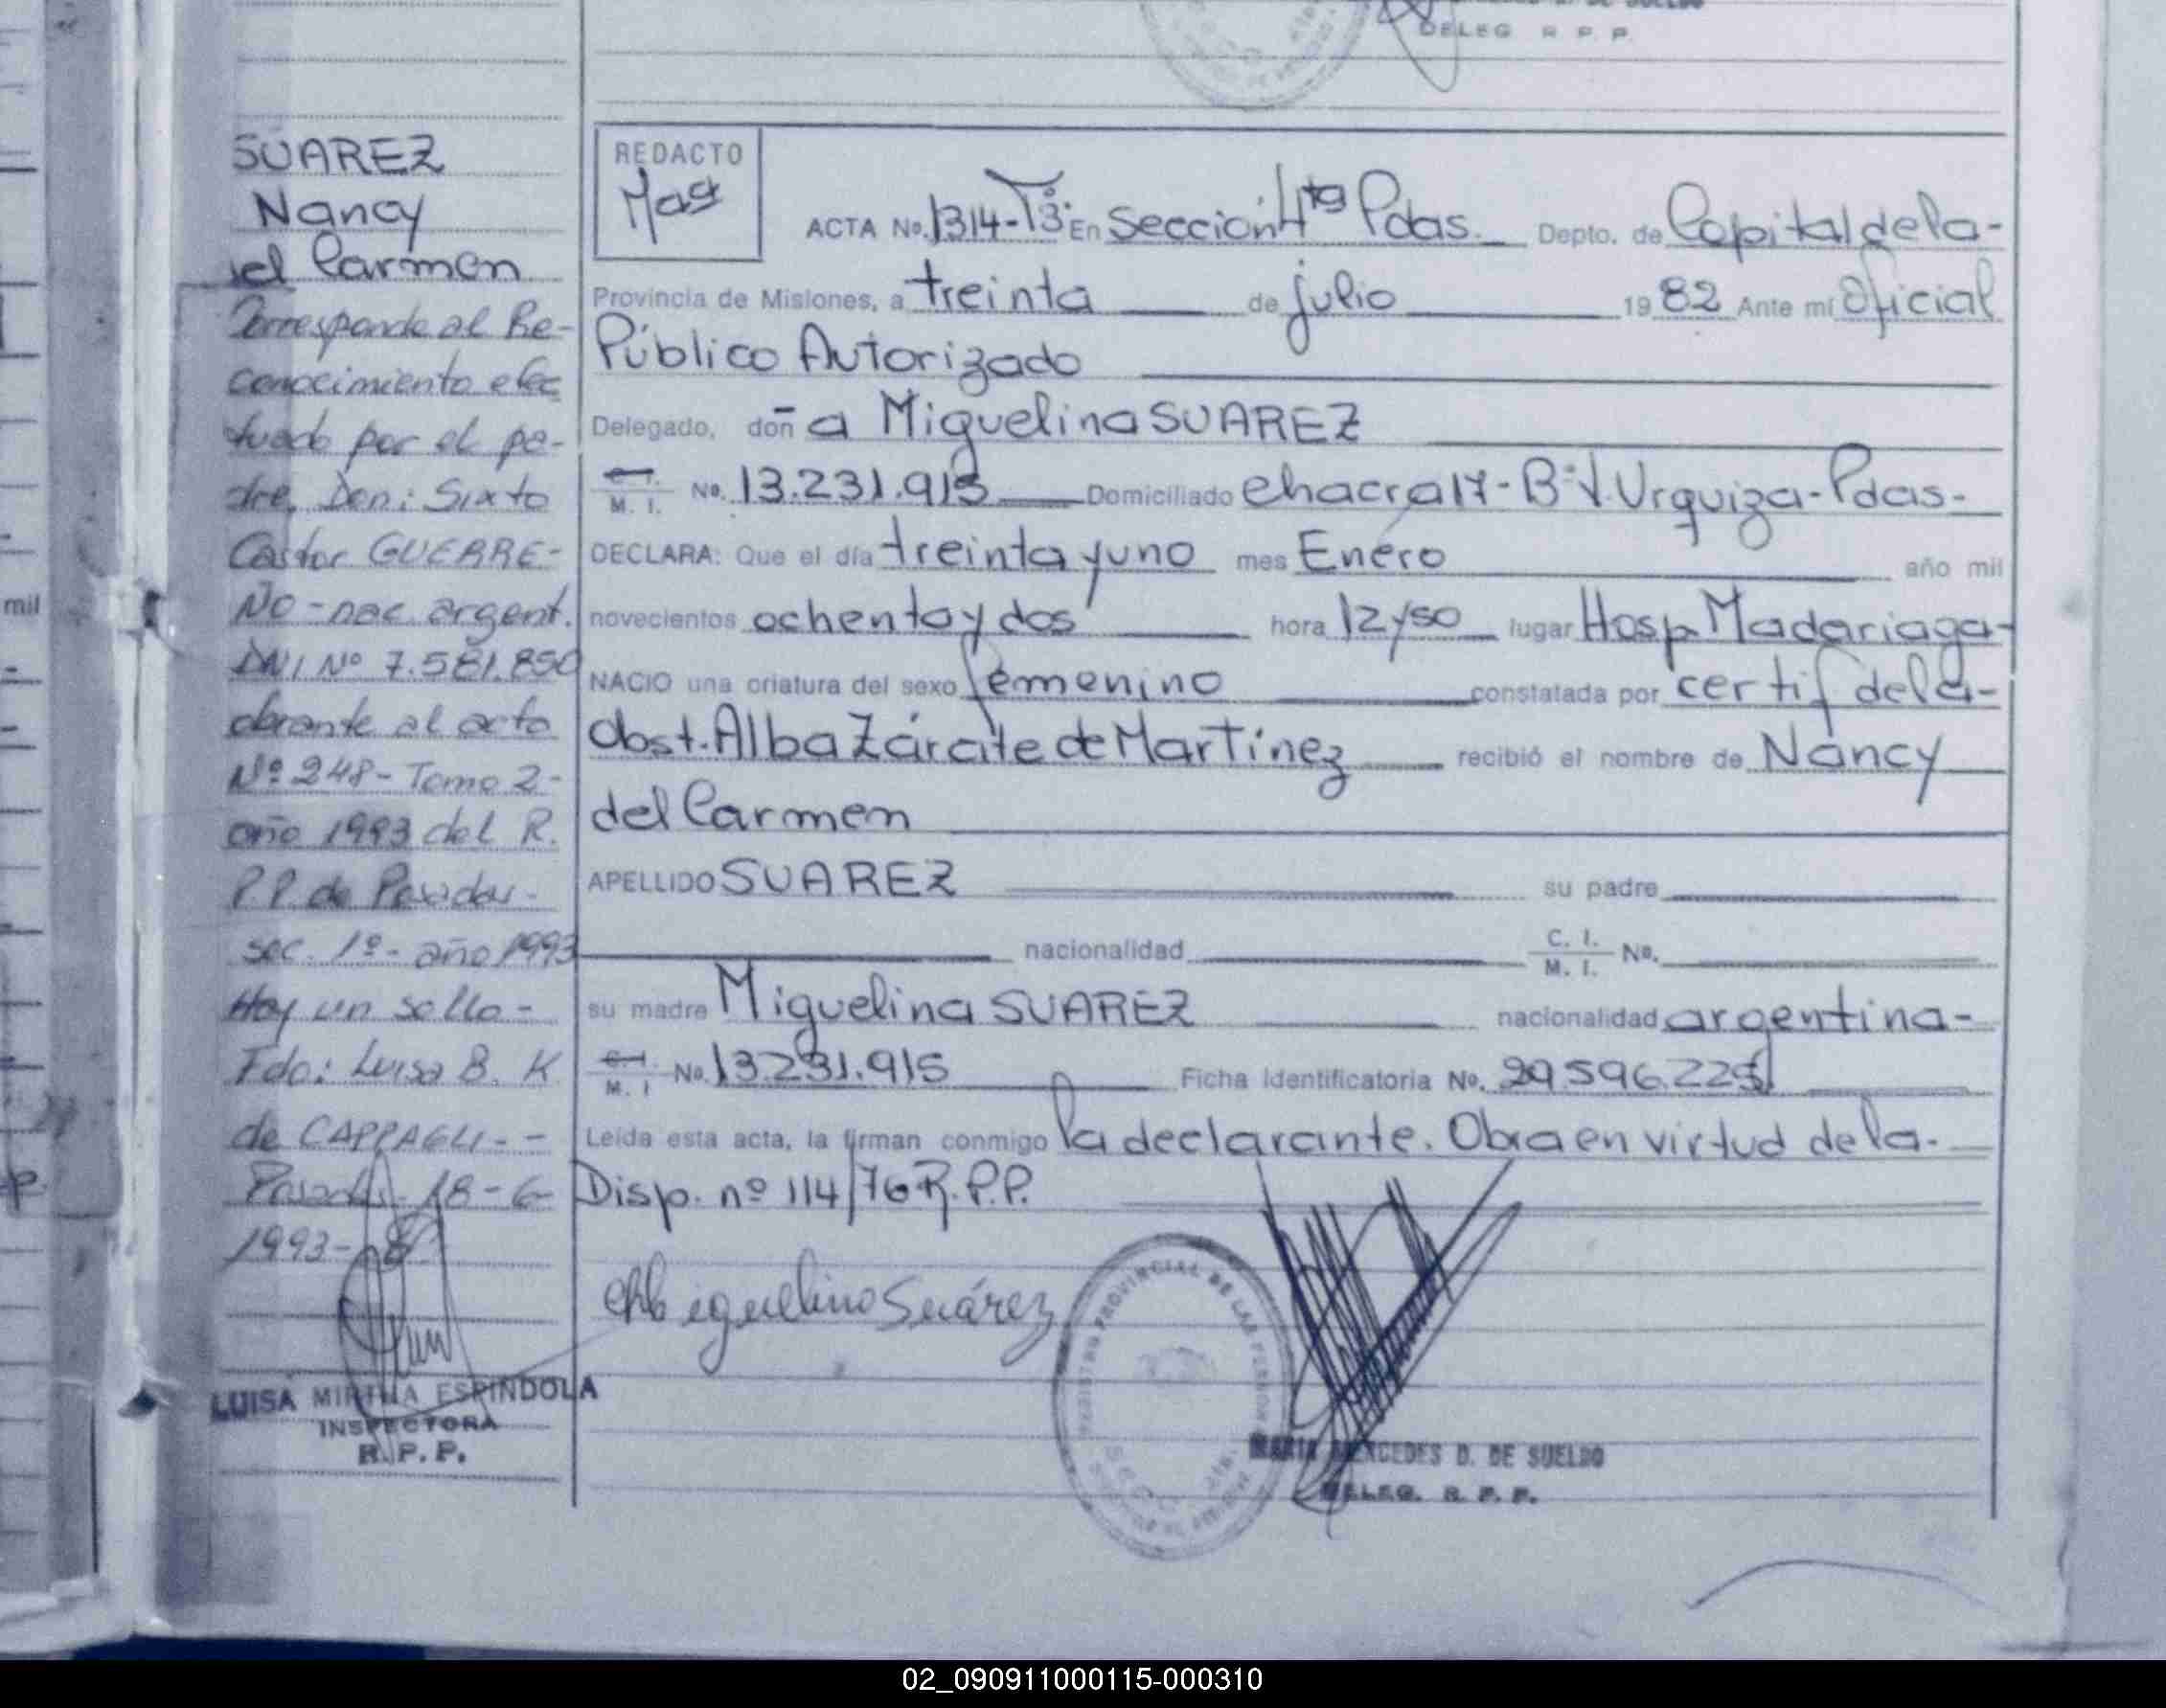 DELEG R P P
SUAREZ
Nancy
del Carmen
Corresponde al Re-
conocimiento efec
tuado por el pa-
dre, Don: Sixto
Castor GUERRE-
RO - nac. argent.
DNI Nº 7.581.850
obrante al acta
Nº 248 - Tomo 2-
año 1993 del R.
P.P. de Posadas -
sec. 1º - año 1993
Hay un sello -
Fdo: Luisa B. K
de CAPPAGLI - -
Posadas 18-6-
1993-
LUISA MIRTHA ESPINDOLA
INSPECTORA
R.P.P.
REDACTO
ACTA No. 1314-Tº3º En Sección 4ta Pdas. Depto. de Capital de la-
Provincia de Misiones, a treinta de julio 19 82 Ante mí Oficial
Público Autorizado
Delegado, doñ a Miguelina SUAREZ
C.I. M. I. No. 13.231.915 Domiciliado chacra 17 - Bº V. Urquiza - Pdas -
DECLARA: Que el día treinta y uno mes Enero año mil
novecientos ochenta y dos hora 12 y 50 lugar Hosp Madariaga -
NACIO una criatura del sexo femenino constatada por certif de la -
obst. Alba Zárate de Martínez recibió el nombre de Nancy
del Carmen
APELLIDO SUAREZ su padre
nacionalidad C. I. M. I. No.
su madre Miguelina SUAREZ nacionalidad argentina -
C.I. M. I No. 13.231.915 Ficha Identificatoria No. 29.596.225
Leída esta acta, la firman conmigo la declarante. Obra en virtud de la.
Disp. nº 114/76 R.P.P.
Miguelina Suárez
MARIA MERCEDES D. DE SUELDO
DELEG. R. P. P.
mil
02_090911000115-000310